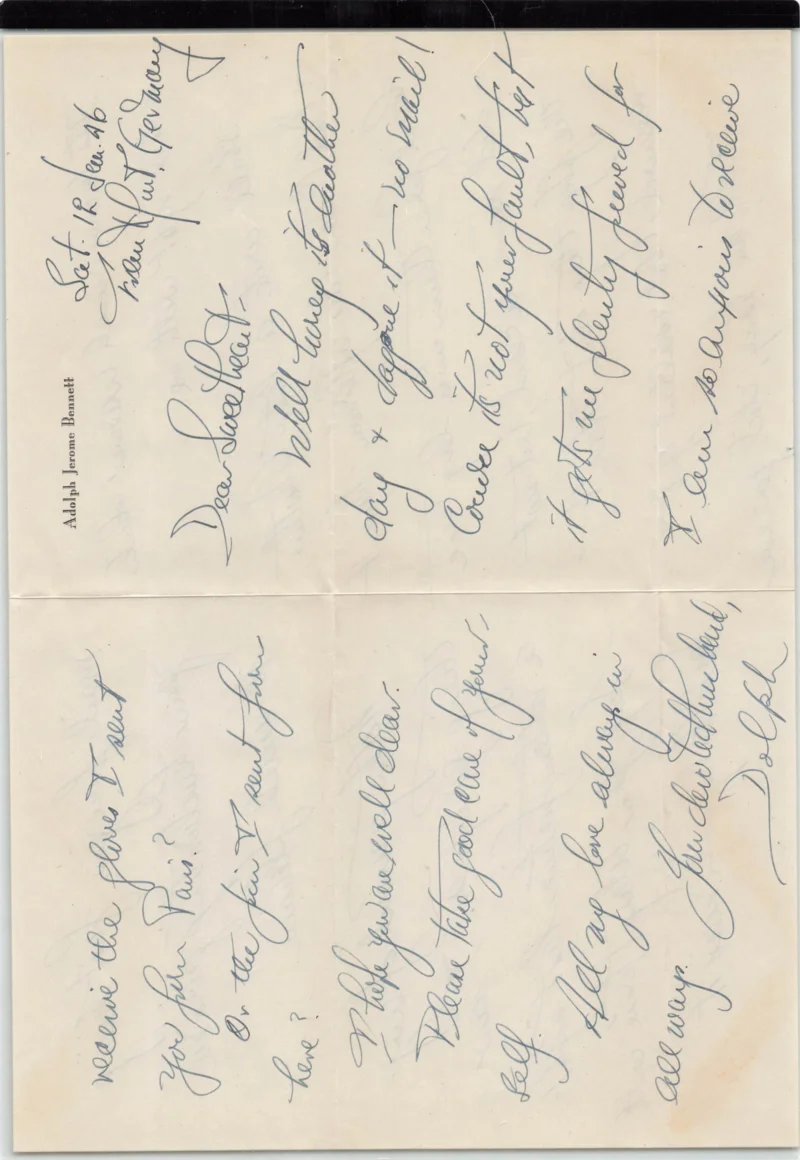 Adolph Jerome Bennett
Sat. 12 Jan. 46
Frankfurt, Germany
Dear Sweetheart:-
Well honey its another
day & dagone it — no mail!
Course its not your fault, but
it gets me plenty peeved for
I am so anxious to receive
receive the gloves I sent
you from Paris?
Or the pin I sent from
here?
I hope you are well dear.
Please take good care of your-
self.
All my love always in
all ways.
Your devoted husband,
Dolph